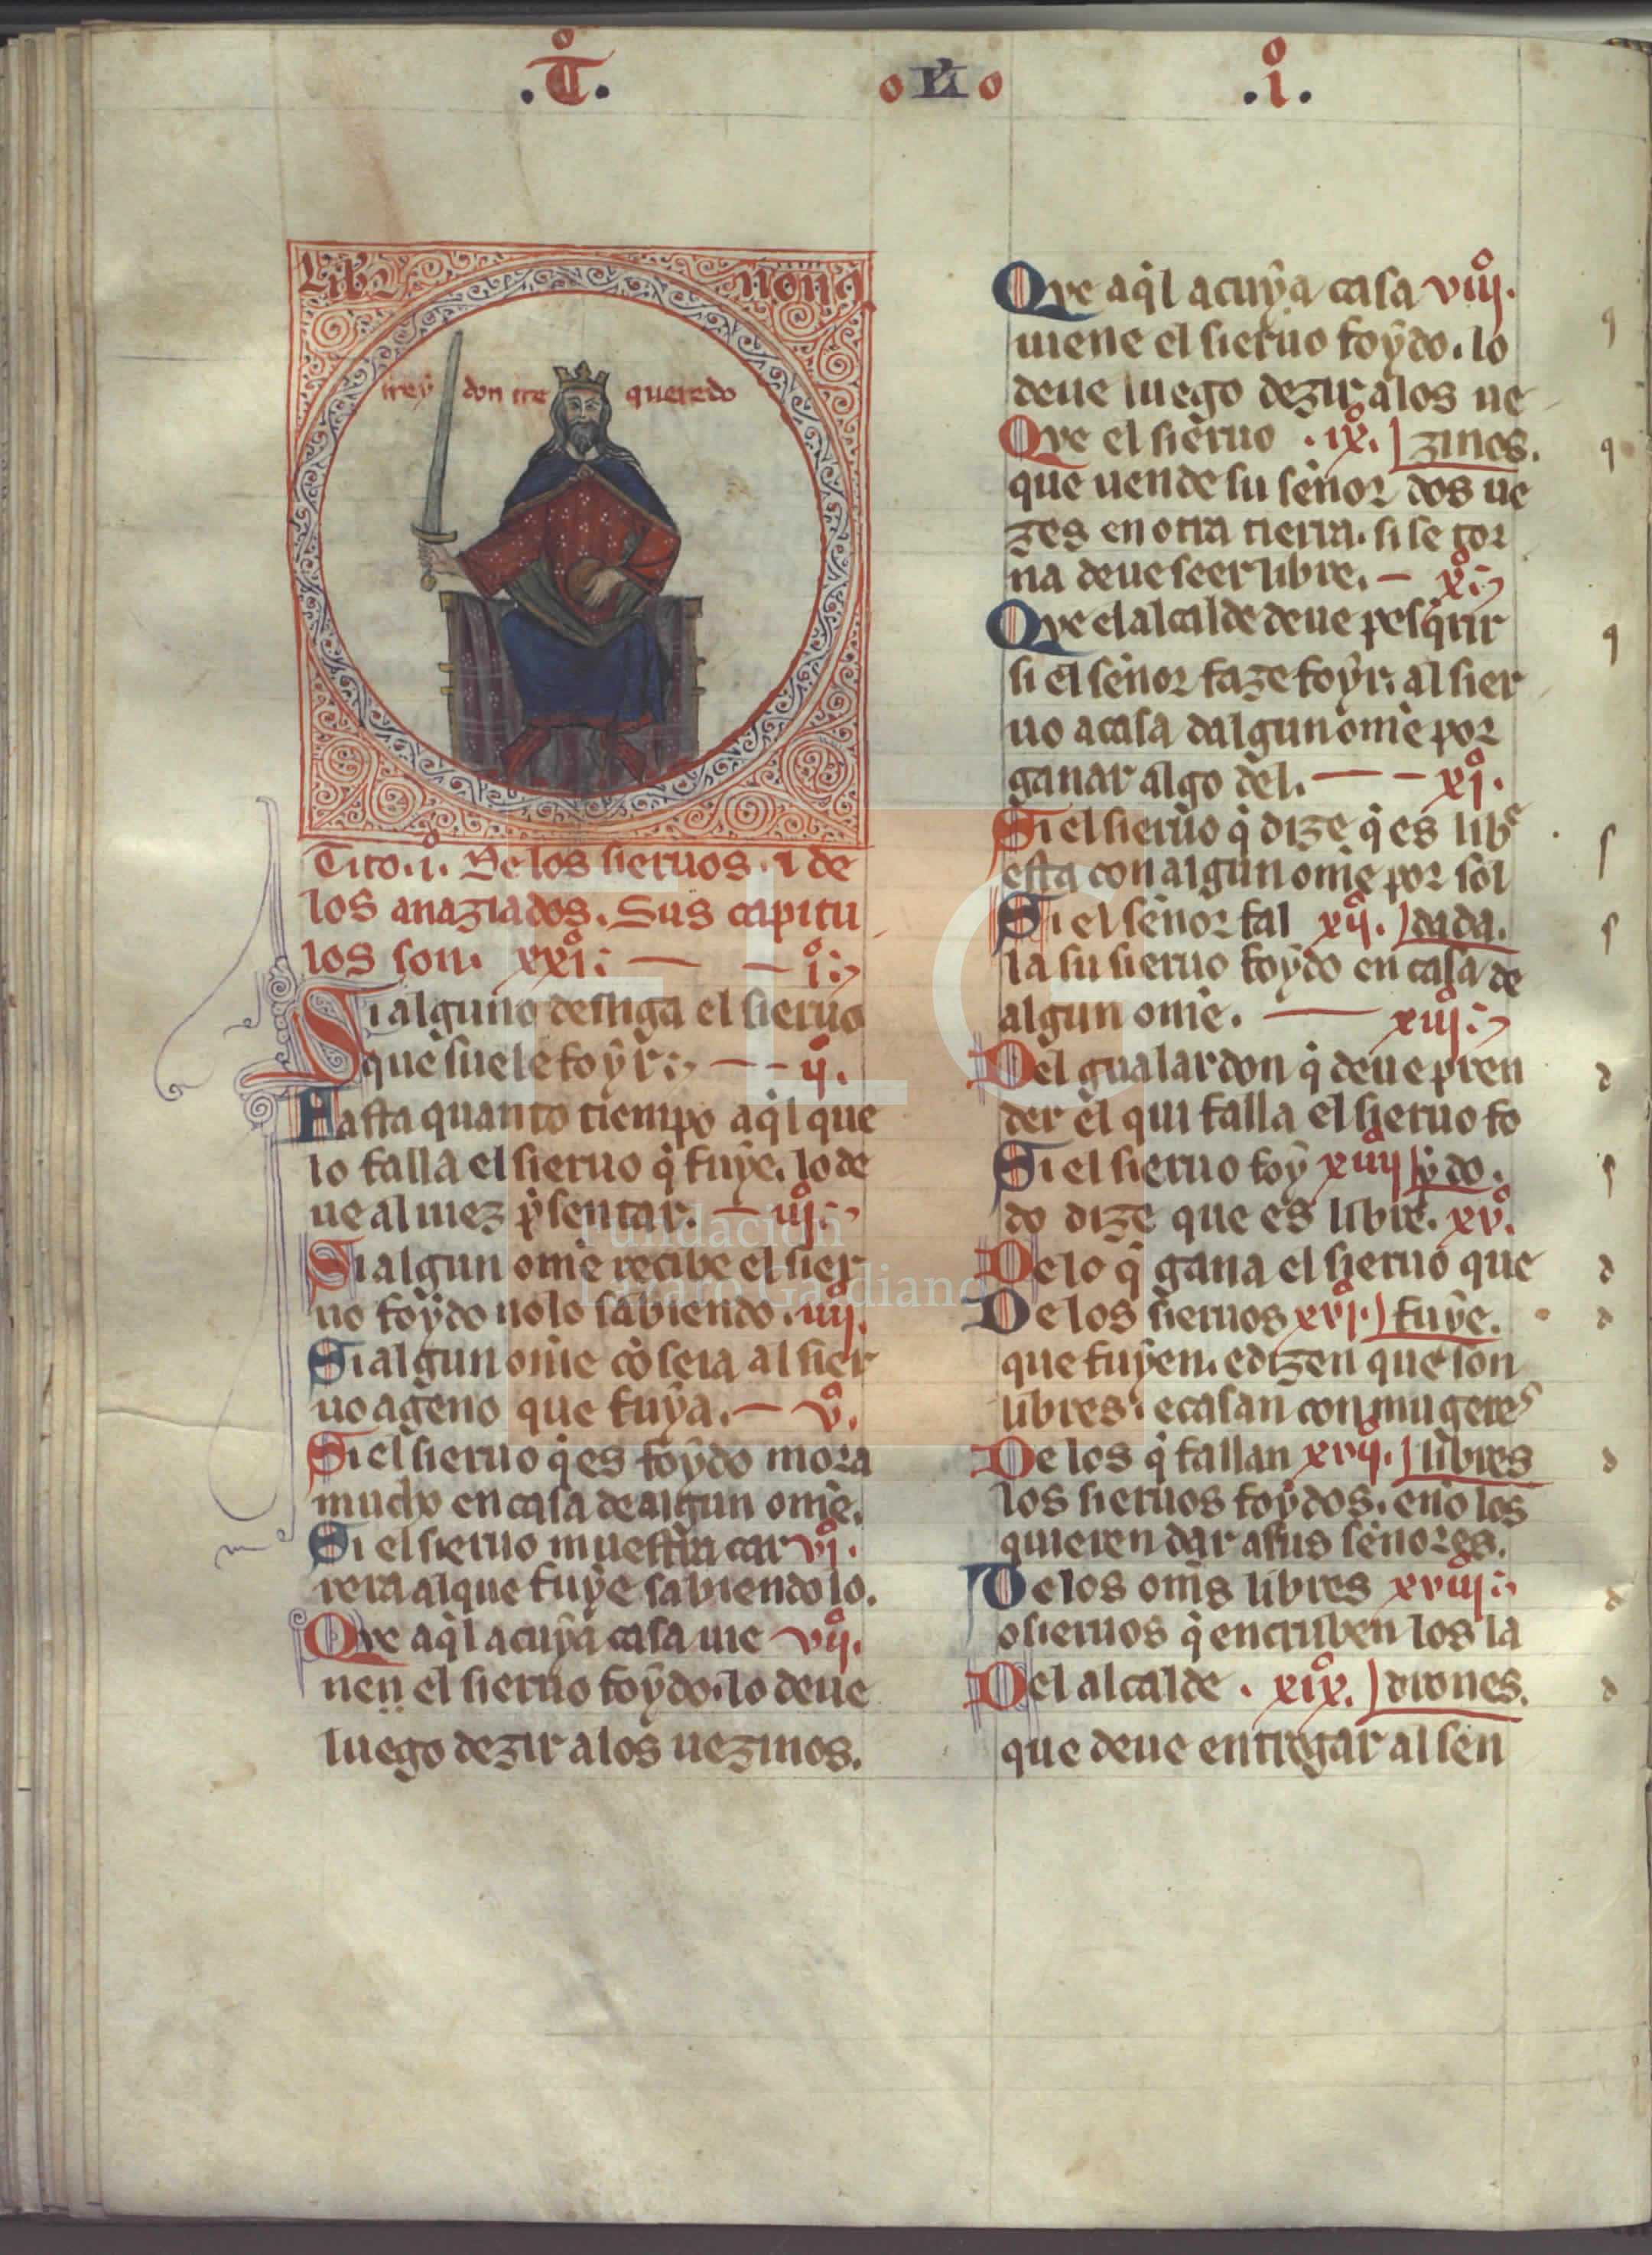 .T.
o Lı o
.i.
Lib2 nonꝯ
rrey don rre queredo
Tito.i. De los sieruos. ⁊ de
los anaziados. Sus capitu
los son. xxi: — — i:
Si alguno desliga el sieruo
que suele foyr: — — ij.
Fasta quanto tiempo aql que
lo falla el sieruo q̇ fuye. lo de
ue al iuez p̃sentar. — iij:
Si algun ome recibe el sier
uo foydo no lo sabiendo. iiij.
Si algun ome cõseia al sier
uo ageno que fuya. — v.
Si el sieruo q̇ es foydo mora
mucho en casa de algun ome.
Si el sieruo muestra car vi.
rera al que fuye sabiendo lo.
Que aql a cuya casa uie vij.
nen el sieruo foydo. lo deue
luego dezir a los uezinos.
Que aql a cuya casa viij.
uiene el sieruo foydo. lo
deue luego dezir a los ue
Que el sieruo .ix. zinos.
que uende su señor dos ue
zes en otra tierra. si se tor
na deue seer libre. — x:
Que el alcalde deue pesq̇rir
si el señor faze foyr. al sier
uo a casa dalgun ome por
ganar algo del. — — xi.
Si el sieruo q̇ dize q̇ es libᵉ
esta con algun ome por sol
Si el señor fal xij. dada.
la su sieruo foydo en casa de
algun ome. — xiij:
Del gualardon q̇ deue pren
der el qui falla el sieruo fo
Si el sieruo foy xiiij ydo.
do dize que es libre. xv.
De lo q̇ gana el sieruo que
De los sieruos xvi. fuye.
que fuyen. e dizen que son
libres. e casan con mugeres
De los q̇ fallan xvij. libres
los sieruos foydos. e no los
quieren dar a sus señores.
De los oms libres xviij:
o sieruos q̇ encruben los la
Del alcalde . xix. drones.
que deue entregar al señ
Fundación
Lázaro Galdiano
FLG